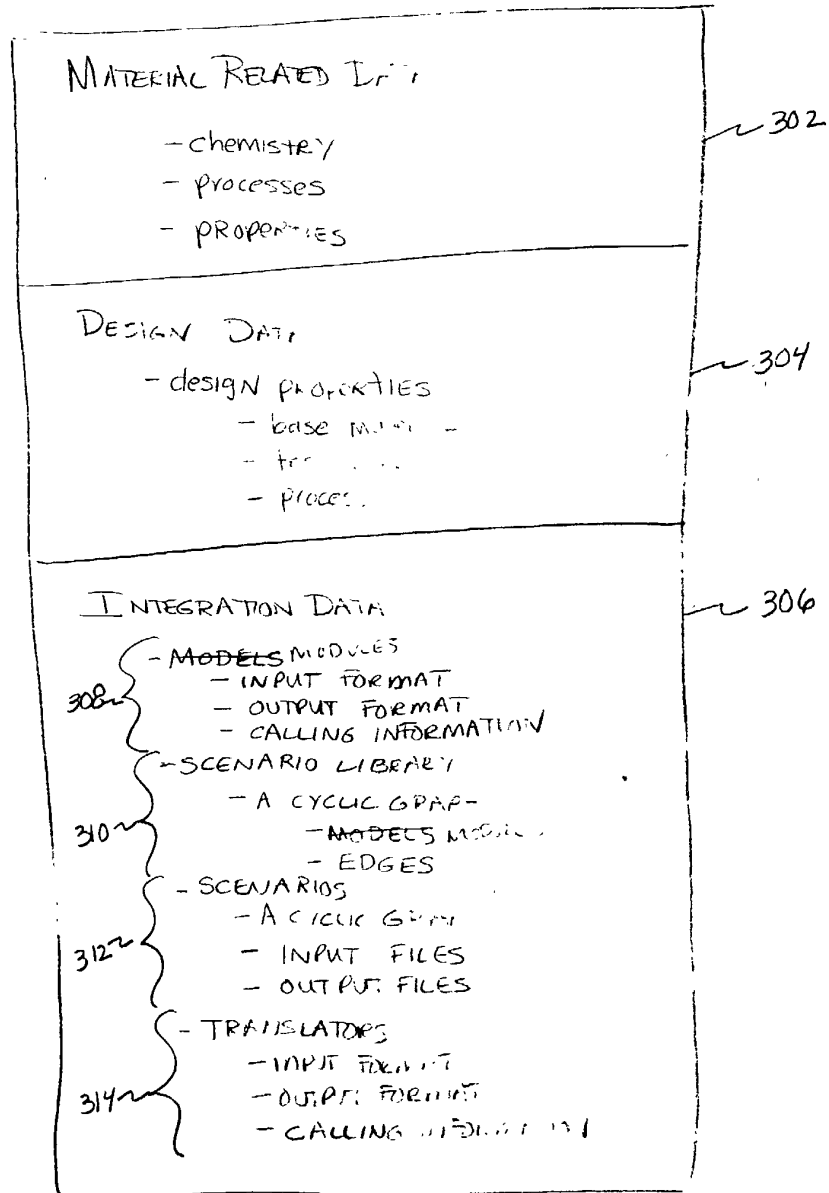 MATERIAL RELATED
302
- chemistry
- processes
- PROPERTIES
DESIGN DATA
304
- design PROPERTIES
- base
- proces
INTEGRATION DATA
306
308
- MODELS MODULES
- INPUT FORMAT
- OUTPUT FORMAT
- CALLING INFORMATION
310
- SCENARIO LIBRARY
- A CYCLIC GRAP
- MODELS
- EDGES
312
- SCENARIOS
- A CYCLIC
- INPUT FILES
- OUTPUT FILES
314
- TRANSLATORS
- INPUT FORMAT
- OUTPUT FORMAT
- CALLING INFORMATION